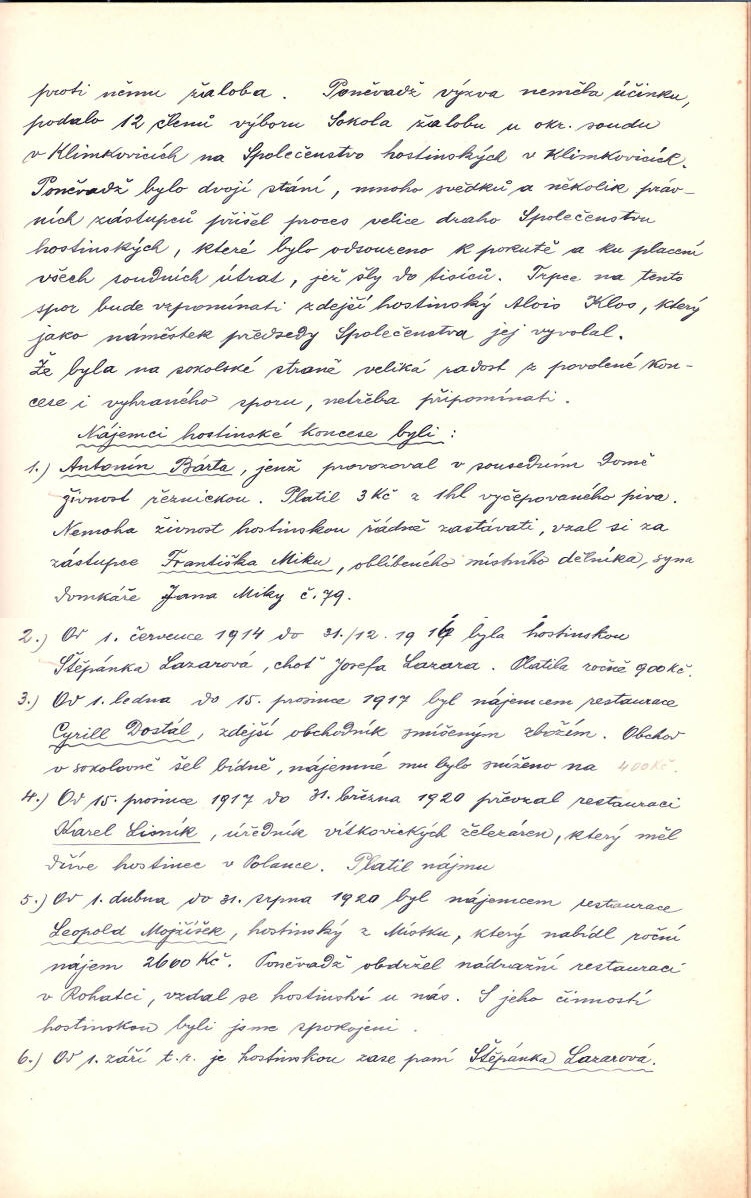 proti němu žaloba. Poněvadž výzva neměla účinku,
podalo 12 členů výboru Sokola žalobu u okr. soudu
v Klimkovicích na Společenstvo hostinských v Klimkovicích.
Poněvadž bylo dvojí stání, mnoho svědků a několik práv-
ních zástupců přišel proces velice draho Společenstvu
hostinských, které bylo odsouzeno k pokutě a ku placení
všech soudních útrat, jež šly do tisíců. Trpce na tento
spor bude vzpomínati zdejší hostinský Alois Klos, který
jako náměstek předsedy Společenstva jej vyvolal.
Že byla na sokolské straně veliká radost z povolené kon-
cese i vyhraného sporu, netřeba připomínati.
Nájemci hostinské koncese byli:
1.) Antonín Bárta, jenž provozoval v sousedním domě
živnost řeznickou. Platil 3 Kč z 1hl vyčepovaného piva.
Nemoha živnost hostinskou řádně zastávati, vzal si za
zástupce Františka Miku, oblíbeného místního dělníka, syna
domkáře Jana Miky č. 79.
2.) Od 1. července 1914 do 31./12. 1916 byla hostinskou
Štěpánka Lazarová, choť Josefa Lazara. Platila ročně 900 Kč.
3.) Od 1. ledna do 15. prosince 1917 byl nájemcem restaurace
Cyrill Dostál, zdejší obchodník smíšeným zbožím. Obchod
v sokolovně šel bídně, nájemné mu bylo sníženo na 400 Kč.
4.) Od 15. prosince 1917 do 31. března 1920 převzal restauraci
Karel Lisník, úředník vítkovických železáren, který měl
dříve hostinec v Polance. Platil nájmu
5.) Od 1. dubna do 31. srpna 1920 byl nájemcem restaurace
Leopold Mojžíšek, hostinský z Místku, který nabídl roční
nájem 2600 Kč. Poněvadž obdržel nádražní restauraci
v Rohatci, vzdal se hostinství u nás. S jeho činností
hostinskou byli jsme spokojeni.
6.) Od 1. září t. r. je hostinskou zase paní Štěpánka Lazarová.